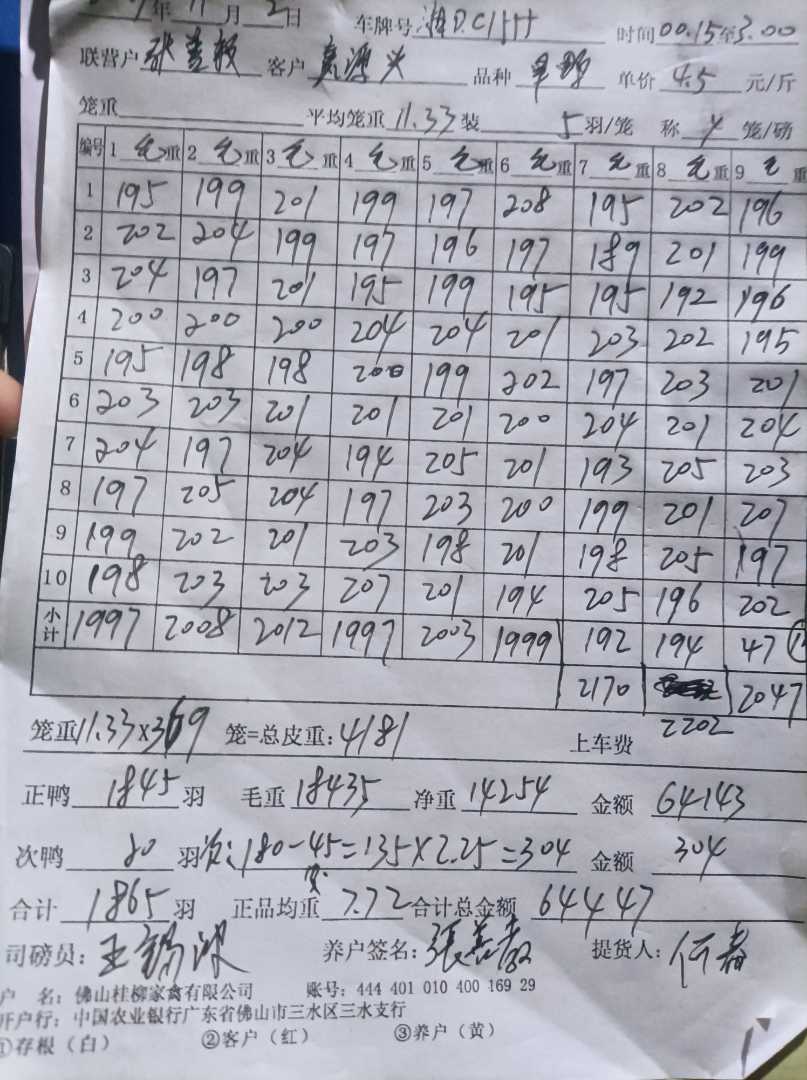 年 11 月 2 日 车牌号 时间 00.15 至 3.00
联营户 客户 品种 单价 4.5 元/斤
笼重 平均笼重 11.33 装 5 羽/笼 称 4 笼/磅
编号 1 毛重 2 毛重 3 毛重 4 毛重 5 毛重 6 毛重 7 毛重 8 毛重 9 毛重
1 195 199 201 199 197 208 195 202 196
2 202 204 199 197 196 197 189 201 199
3 204 197 201 195 199 195 195 192 196
4 200 200 200 204 204 201 203 202 195
5 195 198 198 200 199 202 197 203 201
6 203 203 201 201 201 200 204 201 204
7 204 197 204 194 205 201 193 205 203
8 197 205 204 197 203 200 199 201 207
9 199 202 201 203 198 201 198 205 197
10 198 203 203 207 201 194 205 196 202
小计 1997 2008 2012 1997 2003 1999 192 194 47
2170 2047
2202
笼重 11.33×369 笼=总皮重: 4181 上车费
正鸭 1845 羽 毛重 18435 净重 14254 金额 64143
次鸭 20 羽 次: 180-45=135×2.25=304 金额 304
合计 1865 羽 正品均重 7.72 合计总金额 64447
司磅员: 王锡波 养户签名: 提货人:
户 名: 佛山桂柳家禽有限公司 账号: 444 401 010 400 169 29
开户行: 中国农业银行广东省佛山市三水区三水支行
①存根（白） ②客户（红） ③养户（黄）